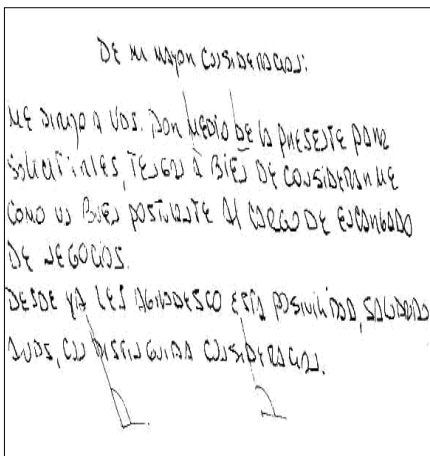 DE MI MAYOR CONSIDERACION:
ME DIRIJO A UDS. POR MEDIO DE LA PRESENTE PARA
SOLICITARLES, TENGAN A BIEN DE CONSIDERARME
COMO UN BUEN POSTULANTE AL CARGO DE ENCARGADO
DE NEGOCIOS.
DESDE YA LES AGRADESCO ESTA POSIVILIDAD, SALUDANDO
A UDS, CON DISTINGUIDA CONSIDERACION.